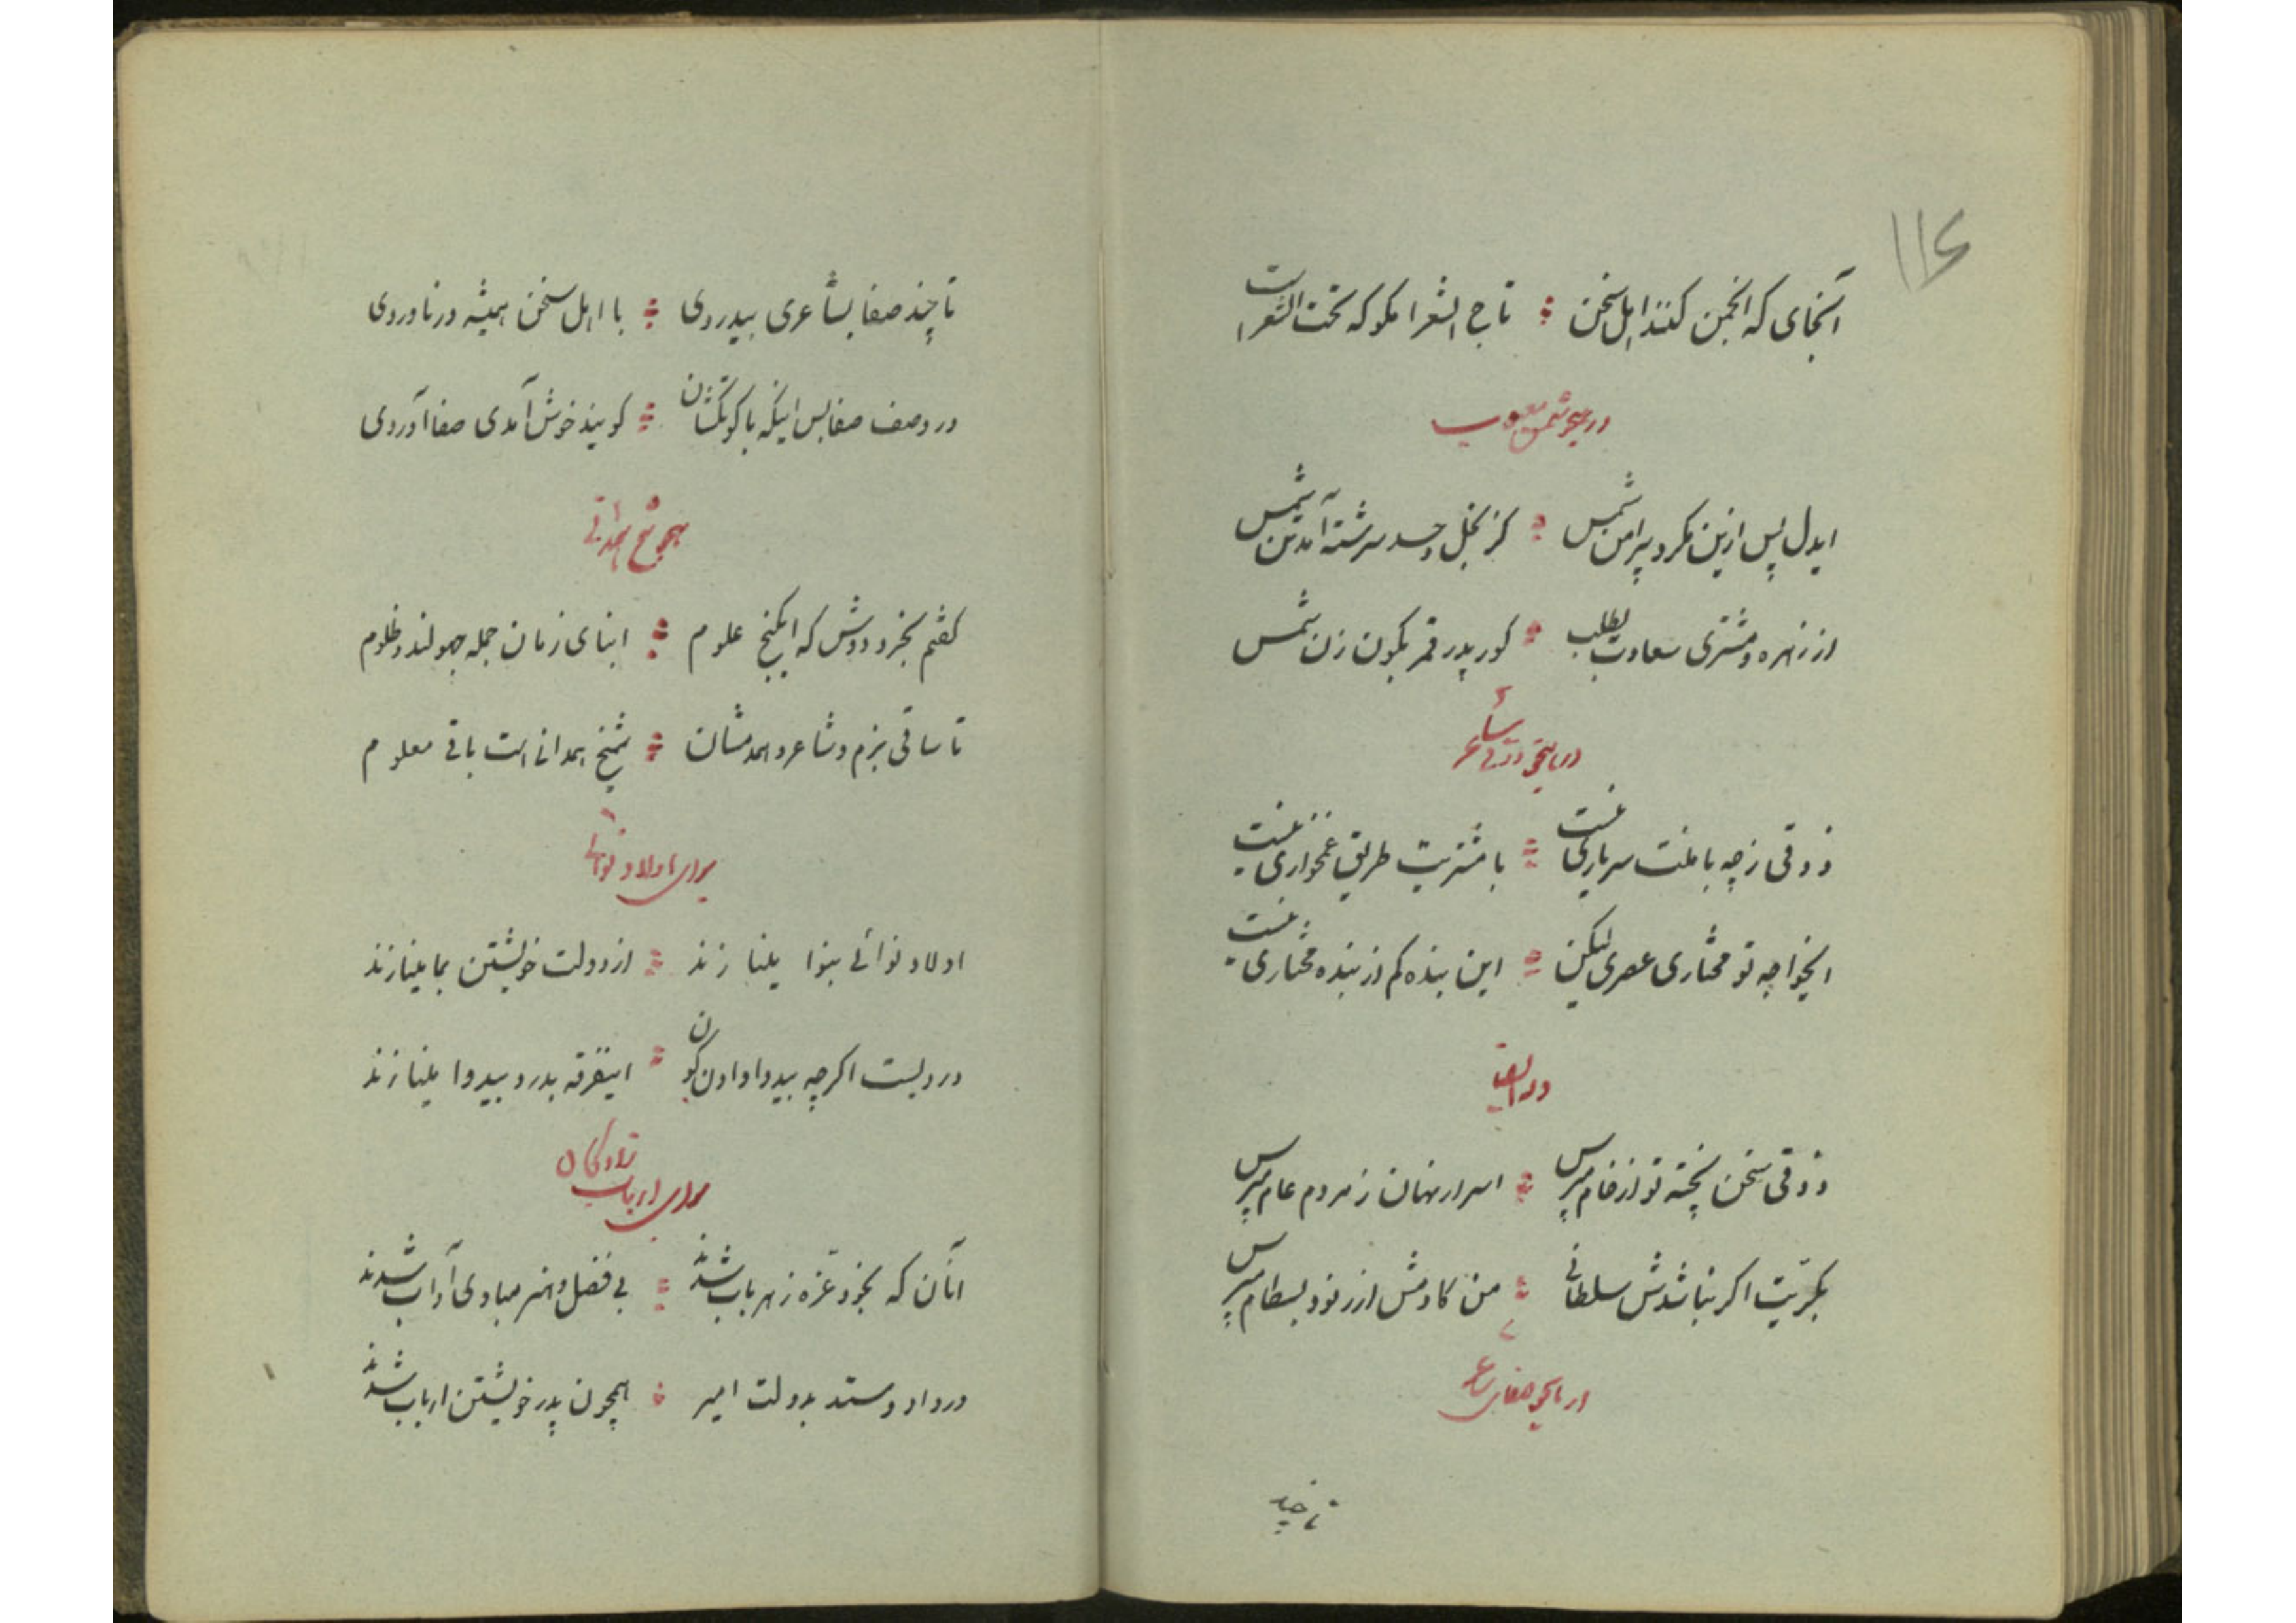 ۱۱۶
آنجای که انجمن کنند اهل سخن ؞ تاج الشعرا مگو که تخت الشعراست
در هجو شمس
ایدل پس ازین مگرد پیرامن شمس ؞ کز بخل و حسد سرشته آمد تن شمس
از زهره و مشتری سعادت بطلب ؞ گور پدر قمر بکون زن شمس
ذوقی ز چه با منت سر یاری نیست ؞ با مشتریت طریق غمخواری نیست
ایخواجه تو مختاری عصری لیکن ؞ این بنده کم از بنده مختاری نیست
وله ایضا
ذوقی سخن پخته تو از خام مپرس ؞ اسرار نهان ز مردم عام مپرس
بکریت اگر نباشدش سلطانی ؞ من کادمش از رنود بسطام مپرس
تا چند
تا چند صفا بشاعری بیدردی ؞ با اهل سخن همیشه در ناوردی
در وصف صفا بس اینکه با گویند خوش آمدی صفا آوردی
هجو شیخ همدانی
گفتم بخرد دوش که ایگنج علوم ؞ ابنای زمان جمله جهولند و ظلوم
تا ساقی بزم و شاعر و همدمشان ؞ شیخ همدانی است باقی معلوم
برای اولاد نوائی
اولاد نوائی بنوا یلنازند ؞ از دولت خویشتن بما یلنازند
دردیست اگرچه بیدوا دادن کون ؞ اینفرقه بدرد بیدوا یلنازند
برای ارباب
آنان که بخرد غره ز هر باب شدند ؞ بی فضل و هنر مبادی آداب شدند
در داد و ستد بدولت امیر ؞ همچون پدر خویشتن ارباب شدند